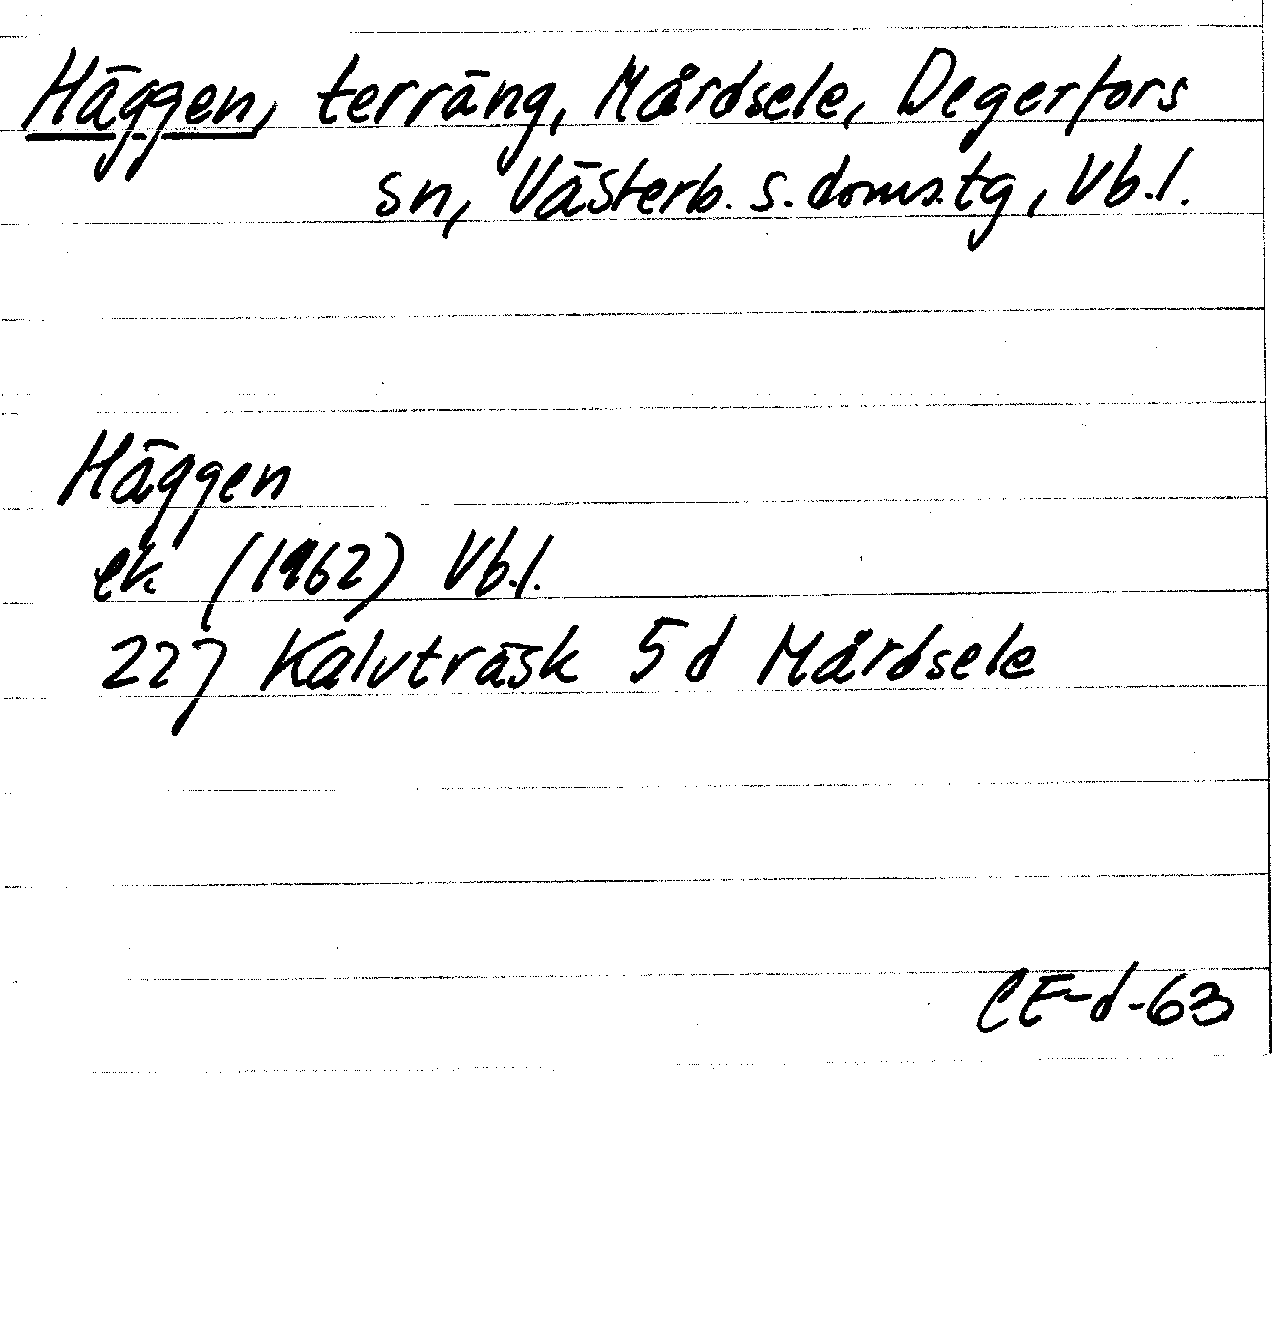 Häggen, terräng, Mårdsele, Degerfors
sn, Västerb. s. doms.tg, Vb.l.
Häggen
ek (1962) Vb.l.
22J Kalvträsk 5d Mårdsele
CE-d-63